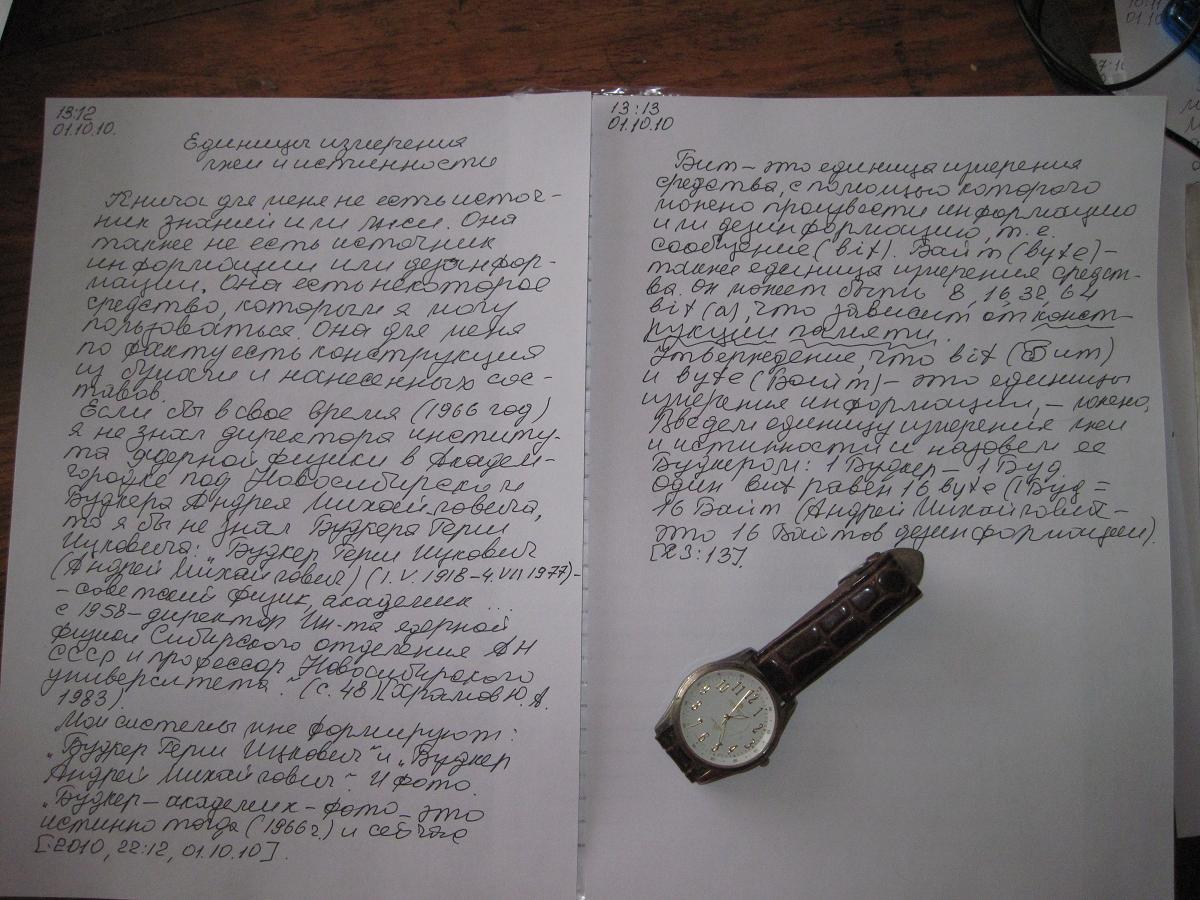 13:12
01.10.10.
Единицы измерения
лжи и истинности
Книга для меня не есть источ-
ник знаний или лжи. Она
также не есть источник
информации или дезинфор-
мации. Она есть некоторое
средство, которым я могу
пользоваться. Она для меня
по факту есть конструкция
из бумаги и нанесенных сос-
тавов.
Если бы в свое время (1966 год)
я не знал директора институ-
та ядерной физики в Академ-
городке под Новосибирском
Будкера Андрея Михайловича,
то я бы не знал Будкера Герш
Ицковича: "Будкер Герш Ицкович
(Андрей Михайлович) (1.V.1918–4.VII 1977)-
- советский физик, академик ...
с 1958 – директор Ин-та ядерной
физики Сибирского отделения АН
СССР и профессор Новосибирского
университета." (с. 48) [Храмов Ю. А.
1983].
Мои системы мне формируют:
"Будкер Герш Ицкович" и "Будкер
Андрей Михайлович". И фото.
"Будкер – академик – фото – это
истинно тогда (1966 г.) и сейчас
[:2010, 22:12, 01.10.10].
13:13
01.10.10
Бит – это единица измерения
средства, с помощью которого
можно произвести информацию
или дезинформацию, т.е.
сообщение (bit). Байт (byte) –
также единица измерения средст-
ва. Он может быть 8, 16, 32, 64
bit (а), что зависит от конст-
рукции памяти.
Утверждение, что bit (Бит)
и byte (Байт) – это единицы
измерения информации, – ложно.
Введем единицу измерения лжи
и истинности и назовем ее
Будкером: 1 Будкер – 1 Буд.
Один bit равен 16 byte (1 Буд =
16 Байт (Андрей Михайлович –
это 16 Байтов дезинформации).
[ :13].
10:11
01.10